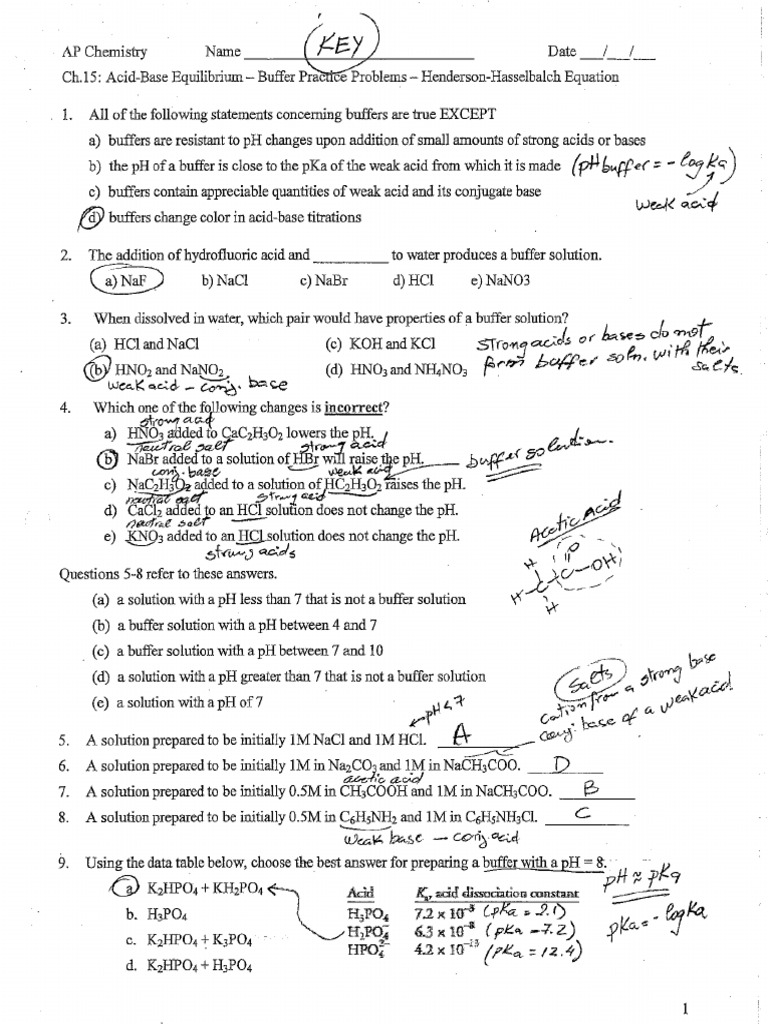 AP Chemistry Name ____________ (KEY) Date ___/___/___
Ch.15: Acid-Base Equilibrium – Buffer Practice Problems – Henderson-Hasselbalch Equation
1. All of the following statements concerning buffers are true EXCEPT
a) buffers are resistant to pH changes upon addition of small amounts of strong acids or bases
b) the pH of a buffer is close to the pKa of the weak acid from which it is made (pH buffer = - log Ka)
c) buffers contain appreciable quantities of weak acid and its conjugate base
weak acid
d) buffers change color in acid-base titrations
2. The addition of hydrofluoric acid and __________ to water produces a buffer solution.
a) NaF b) NaCl c) NaBr d) HCl e) NaNO3
3. When dissolved in water, which pair would have properties of a buffer solution?
(a) HCl and NaCl (c) KOH and KCl
strong acids or bases do not
form buffer soln. with their
salts.
(b) HNO₂ and NaNO₂ (d) HNO₃ and NH₄NO₃
weak acid – conj. base
4. Which one of the following changes is incorrect?
strong acid
a) HNO₃ added to CaC₂H₃O₂ lowers the pH.
neutral salt strong acid
b) NaBr added to a solution of HBr will raise the pH.
conj. base weak acid buffer solution.
c) NaC₂H₃O₂ added to a solution of HC₂H₃O₂ raises the pH.
neutral salt strong acid
d) CaCl₂ added to an HCl solution does not change the pH.
neutral salt
e) KNO₃ added to an HCl solution does not change the pH.
strong acids
Acetic Acid
O
H C C OH
H
H
Questions 5-8 refer to these answers.
(a) a solution with a pH less than 7 that is not a buffer solution
(b) a buffer solution with a pH between 4 and 7
(c) a buffer solution with a pH between 7 and 10
(d) a solution with a pH greater than 7 that is not a buffer solution
(e) a solution with a pH of 7
salts
cation from a strong base
conj. base of a weak acid
pH < 7
5. A solution prepared to be initially 1M NaCl and 1M HCl. A
6. A solution prepared to be initially 1M in Na₂CO₃ and 1M in NaCH₃COO. D
acetic acid
7. A solution prepared to be initially 0.5M in CH₃COOH and 1M in NaCH₃COO. B
8. A solution prepared to be initially 0.5M in C₆H₅NH₂ and 1M in C₆H₅NH₃Cl. C
weak base – conj acid
9. Using the data table below, choose the best answer for preparing a buffer with a pH = 8.
pH ≈ pKa
pKa = - log Ka
a. K2HPO4 + KH2PO4
b. H3PO4
c. K2HPO4 + K3PO4
d. K2HPO4 + H3PO4
Acid Kₐ, acid dissociation constant
H₃PO₄ 7.2 x 10⁻³ (pKa = 2.1)
H₂PO₄⁻ 6.3 x 10⁻⁸ (pKa = 7.2)
HPO₄²⁻ 4.2 x 10⁻¹³ (pKa = 12.4)
1